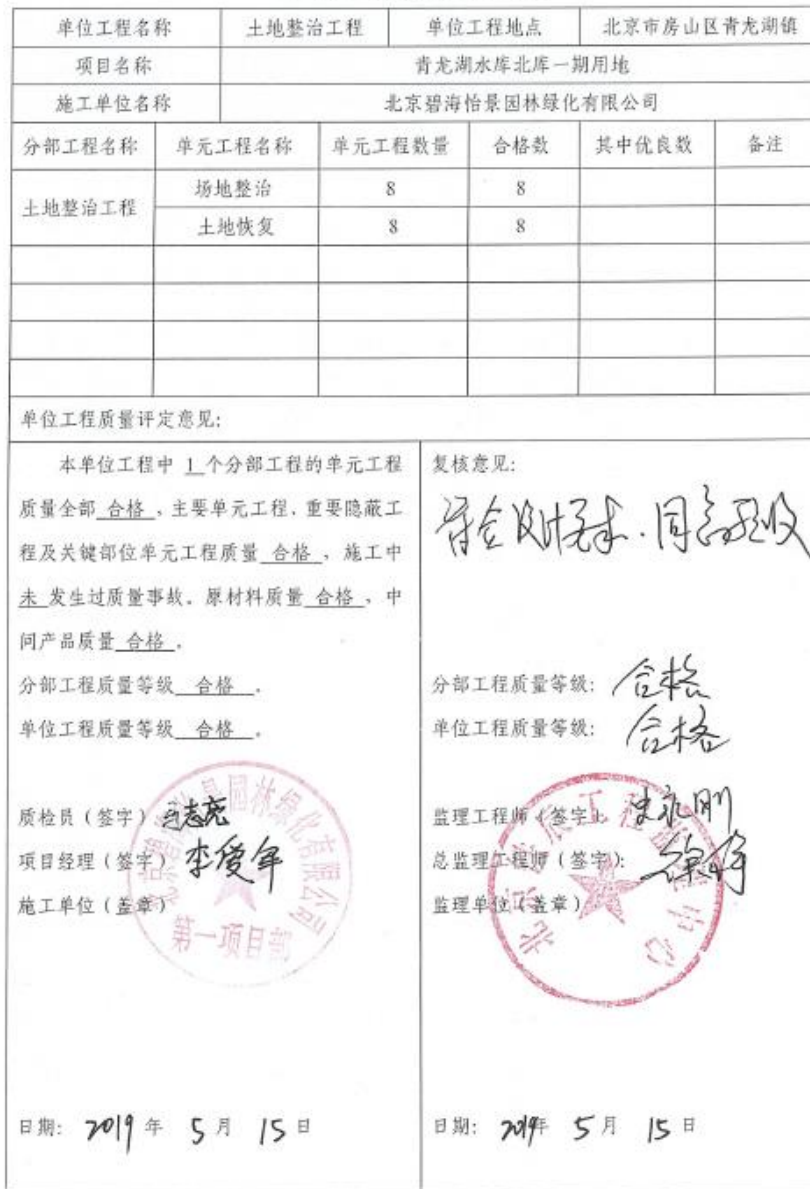 单位工程名称 土地整治工程 单位工程地点 北京市房山区青龙湖镇
项目名称 青龙湖水库北库一期用地
施工单位名称 北京碧海怡景园林绿化有限公司
分部工程名称 单元工程名称 单元工程数量 合格数 其中优良数 备注
土地整治工程 场地整治 8 8
土地恢复 8 8
单位工程质量评定意见:
本单位工程中 1 个分部工程的单元工程
质量全部 合格 、主要单元工程、重要隐蔽工
程及关键部位单元工程质量 合格 、施工中
未 发生过质量事故。原材料质量 合格 、中
间产品质量 合格 。
分部工程质量等级 合格 。
单位工程质量等级 合格 。
质检员（签字）志亮
项目经理（签字）李爱军
施工单位（盖章）
北京碧海怡景园林绿化有限公司
第一项目部
日期: 2019 年 5 月 15 日
复核意见:
符合设计要求.同意验收
分部工程质量等级: 合格
单位工程质量等级: 合格
监理工程师（签字）: 史永刚
总监理工程师（签字）:
监理单位（盖章）
北京地质工程监理中心
日期: 2019年 5 月 15 日